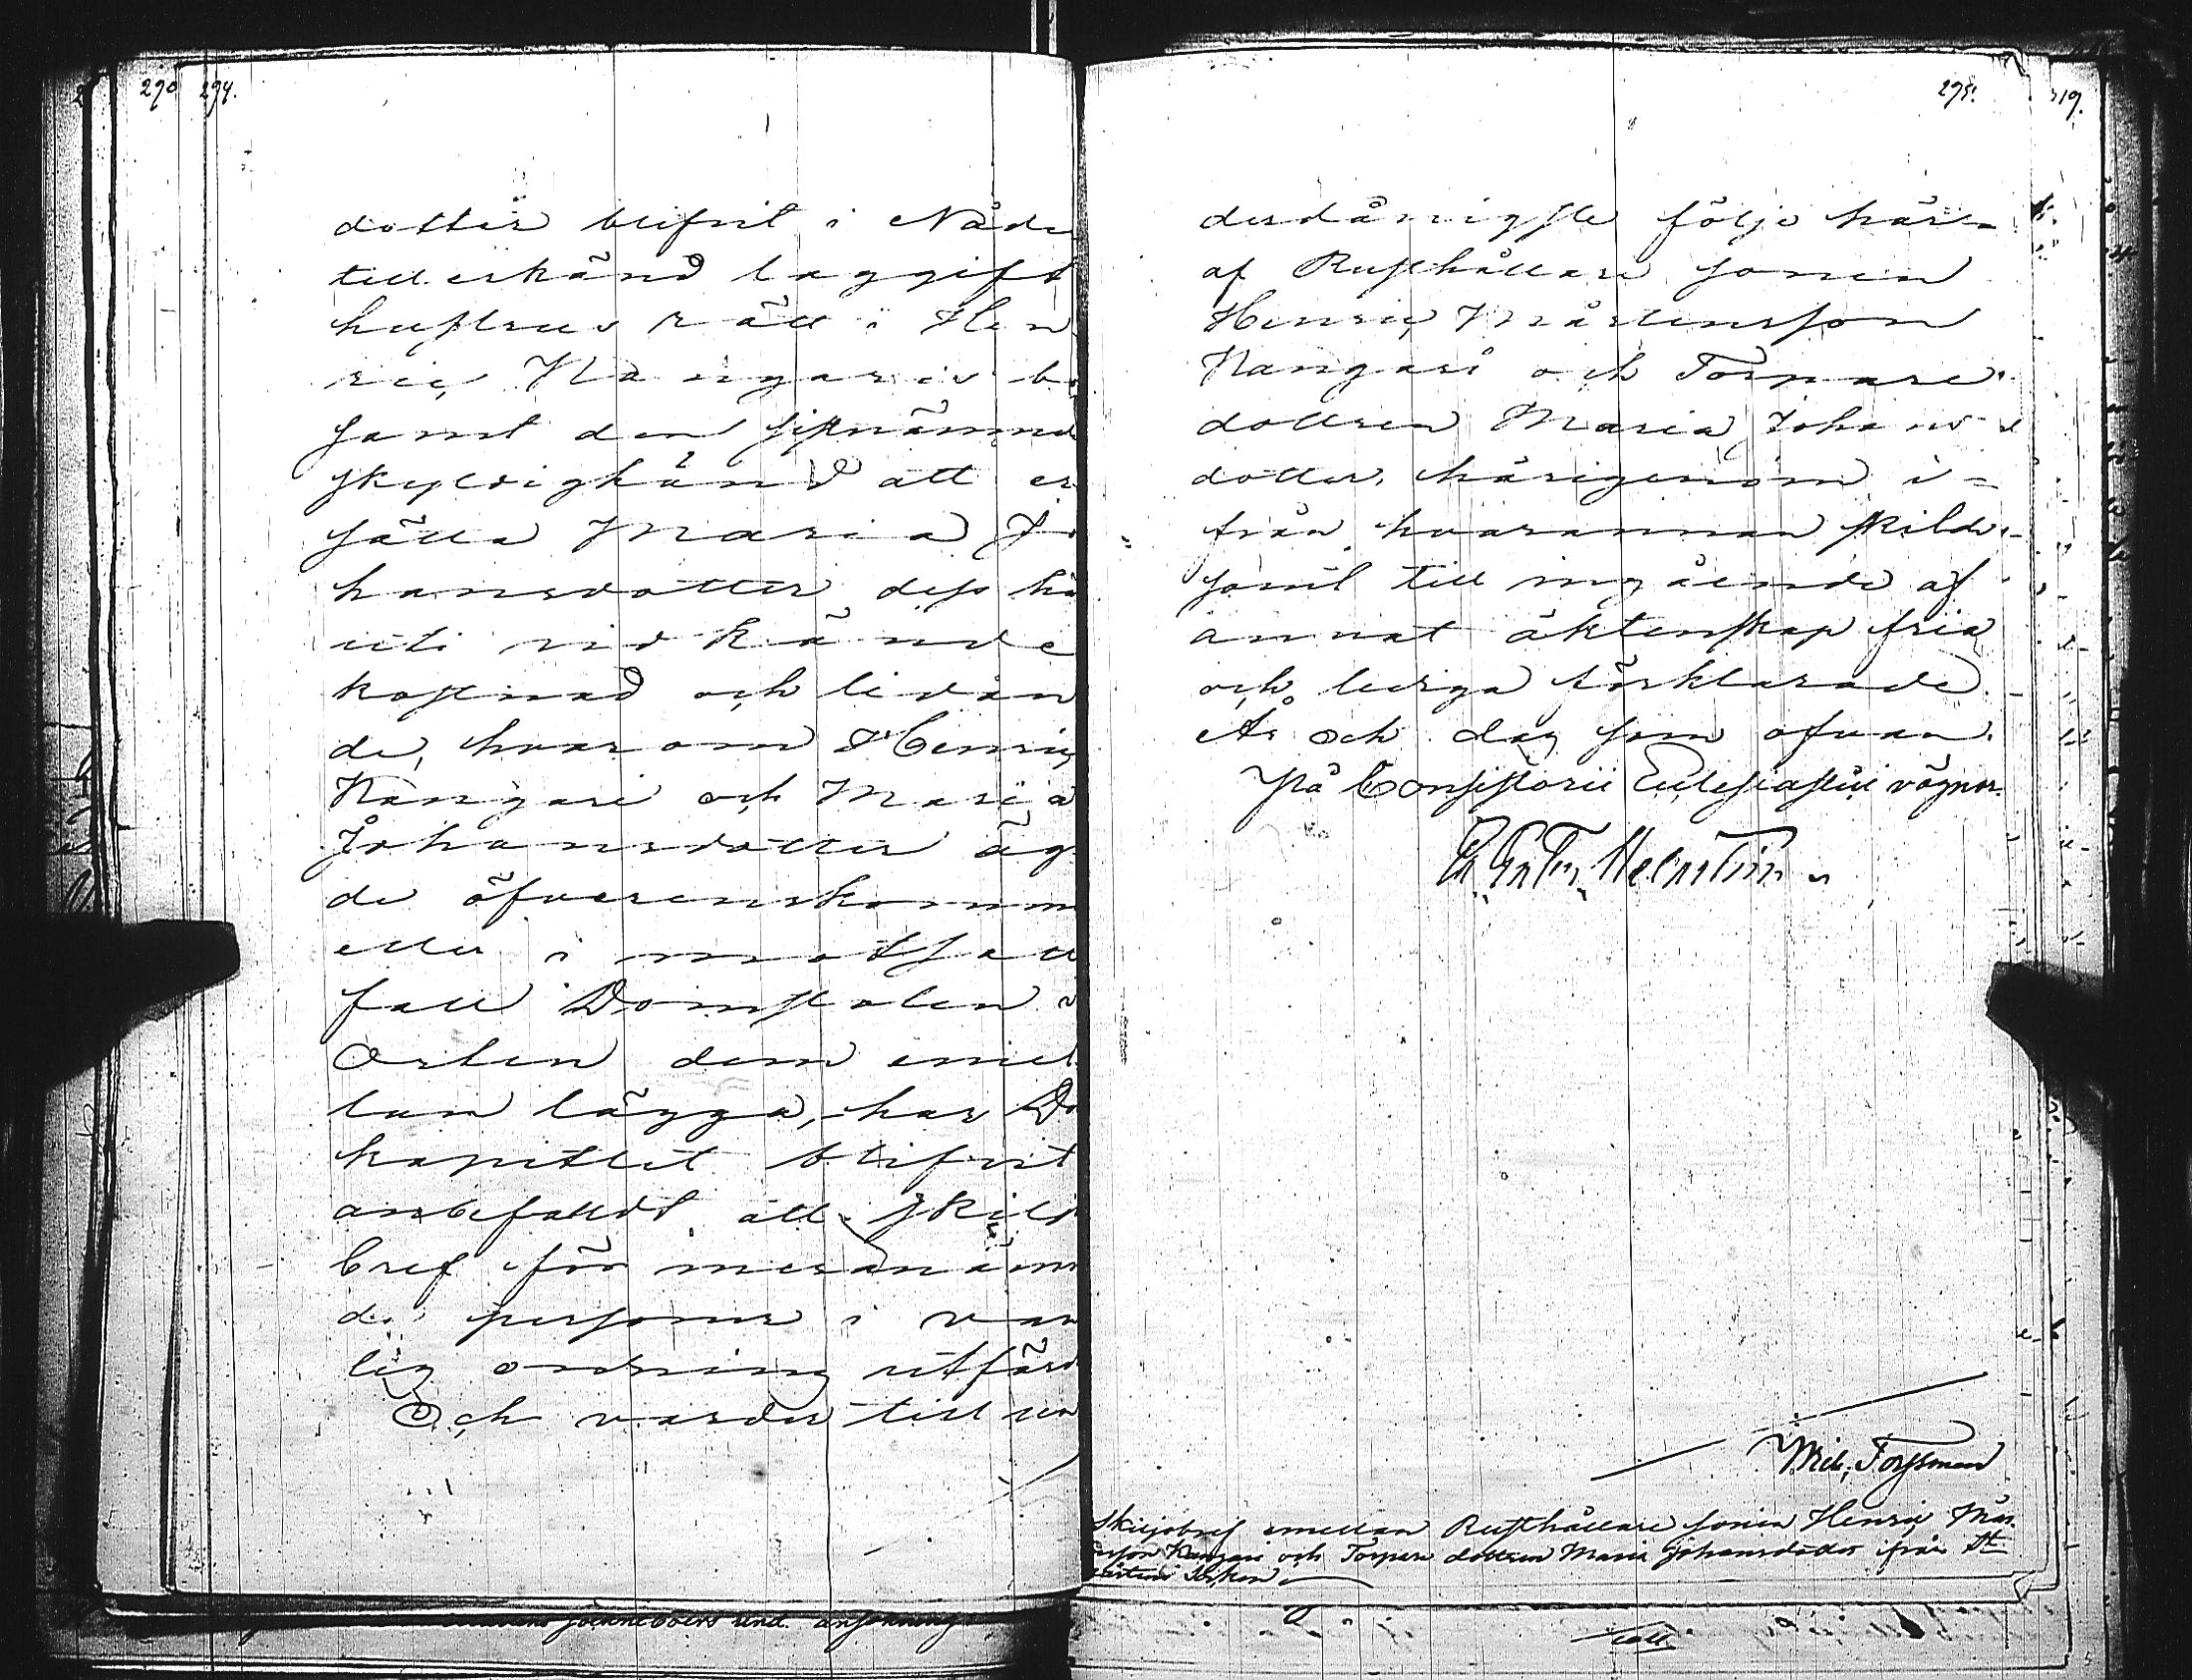 290 294.
dotter blifvit i Nåde
tillerkänd laggift
hustrus rätt i Hen
ric Kangaris bo
samt den sistnämnd
skyldigkänd att er
sätta Maria Jo
hansdotter dess hä
uti vidkände
kostnad och lidan
de, hvarom Henric
Kangari och Maria
Johansdotter äg
de öfverenskomm
eller i motsatt
fall Domstolen å
Orten dem emel
lan lägga, har Do
kapitlet blifvit
anbefalldt att skilj
bref för meranämn
de personer i van
lig ordning utfärd
Och varder till un
295.
319.
derdånigste följe häraf
af Rusthållare sonen
Henric Mårtensson
Kangari och Torpare
dottren Maria Johans
dotter, härigenom i-
från hvarannan skilde
samt till ingående af
annat äktenskap fria
och lediga förklarade.
År och dag som ofvan.
På Consistorii Ecclesiastici vägnar.
Mich. Forssman
Skiljobref emellan Rusthållare sonen Henric Mår
tensson Kangari och Torpare dottren Maria Johansdotter ifrån St
Mårtens Socken
ansökning